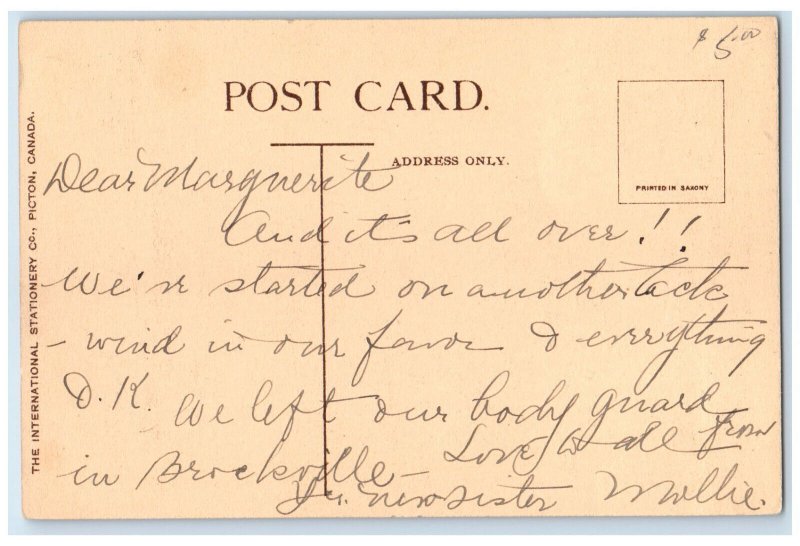 $5.00
POST CARD.
ADDRESS ONLY.
PRINTED IN SAXONY
THE INTERNATIONAL STATIONERY CO., PICTON, CANADA.
Dear Marguerite
And it's all over!!
We're started on another tack
- wind in our favor & everything
O.K. We left our body guard
in Brockville - Love to all from
new sister Mollie.